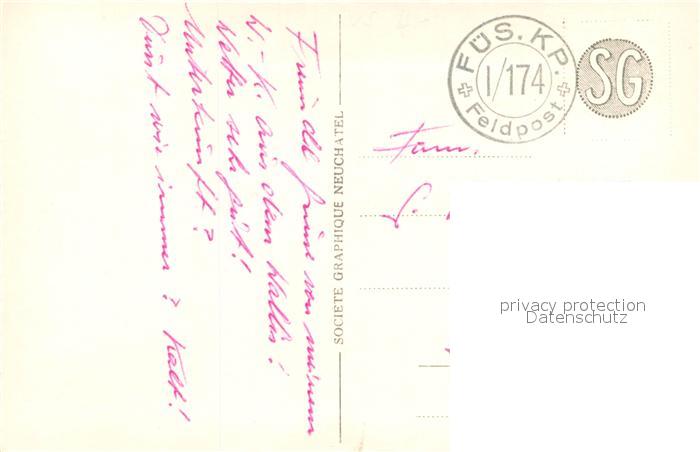 Freundl. Grüsse von meinem
W.-K. aus dem Wallis!
Wetter sehr gut!
Unterkunft?
Durst wie immer? Kalt!
SOCIETE GRAPHIQUE NEUCHATEL
FÜS. KP.
I/174
Feldpost
SG
Fam.
privacy protection
Datenschutz